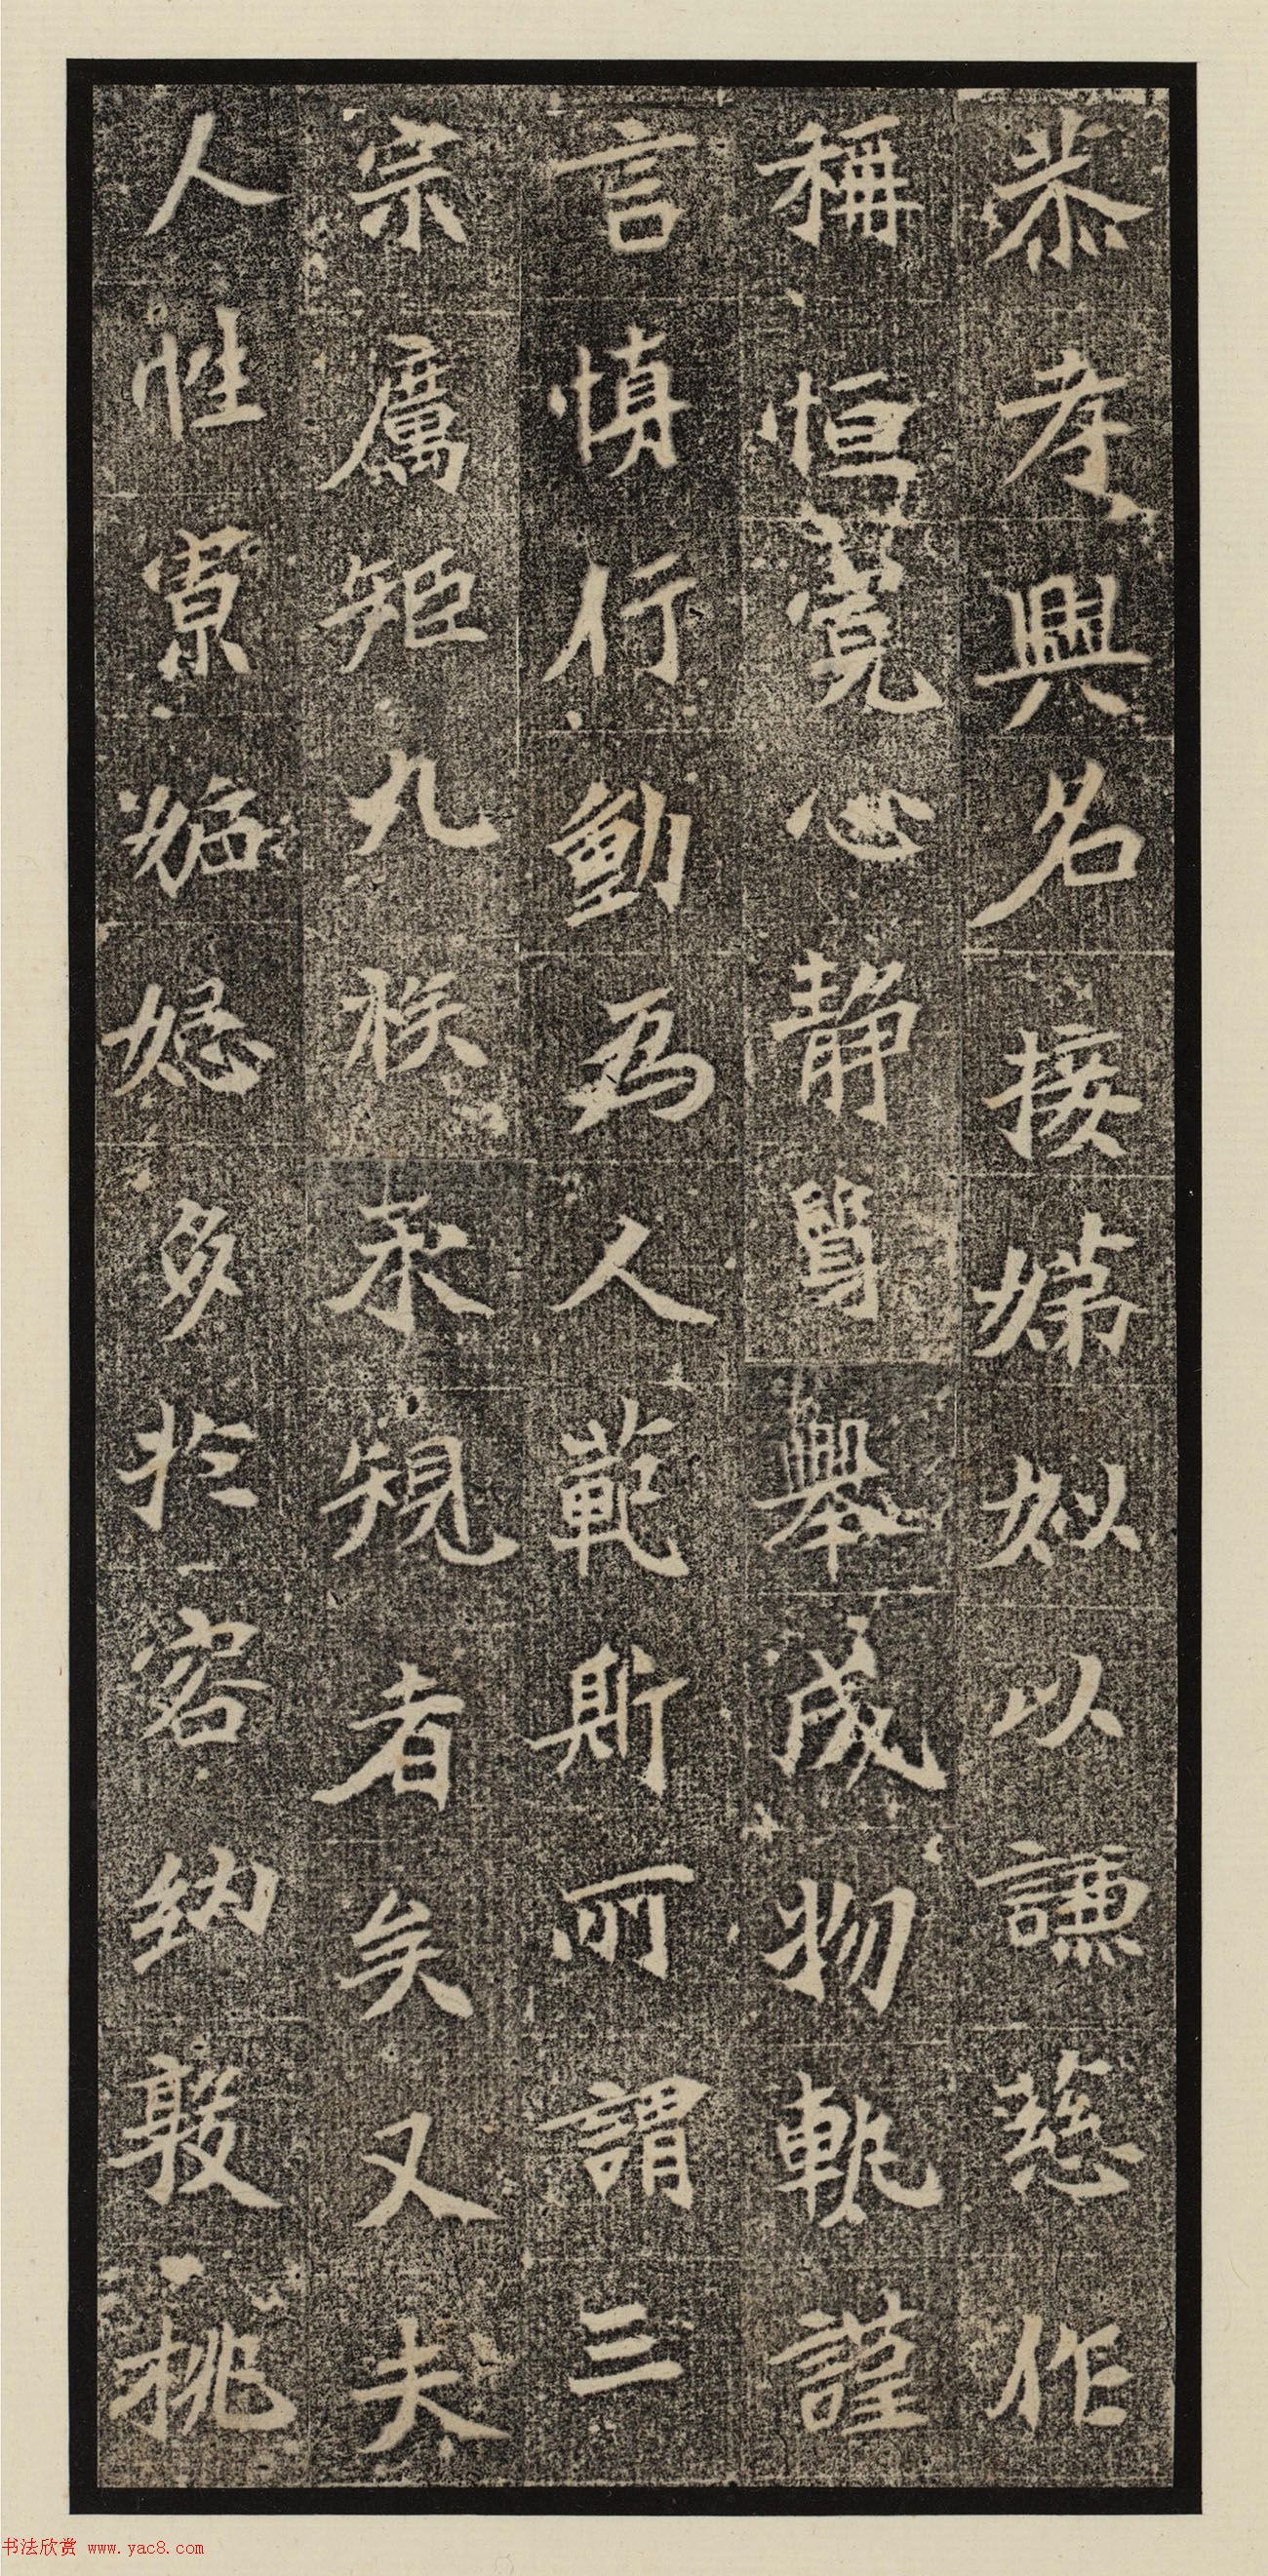 恭孝興名接娣姒以謙慈作
稱恒寬心静躬舉成物軌謹
言慎行動為人範斯所謂三
宗厲矩九族承規者矣又夫
人性寡妬忌多於容納敦桃
书法欣赏 www.yac8.com